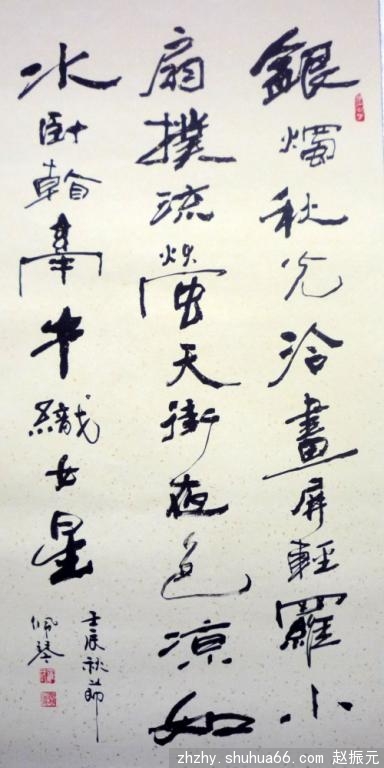 銀燭秋光冷畫屏輕羅小
扇撲流螢天街夜色凉如
水卧看牽牛織女星
壬辰秋節
佩琴
zhzhy.shuhua66.com 赵振元